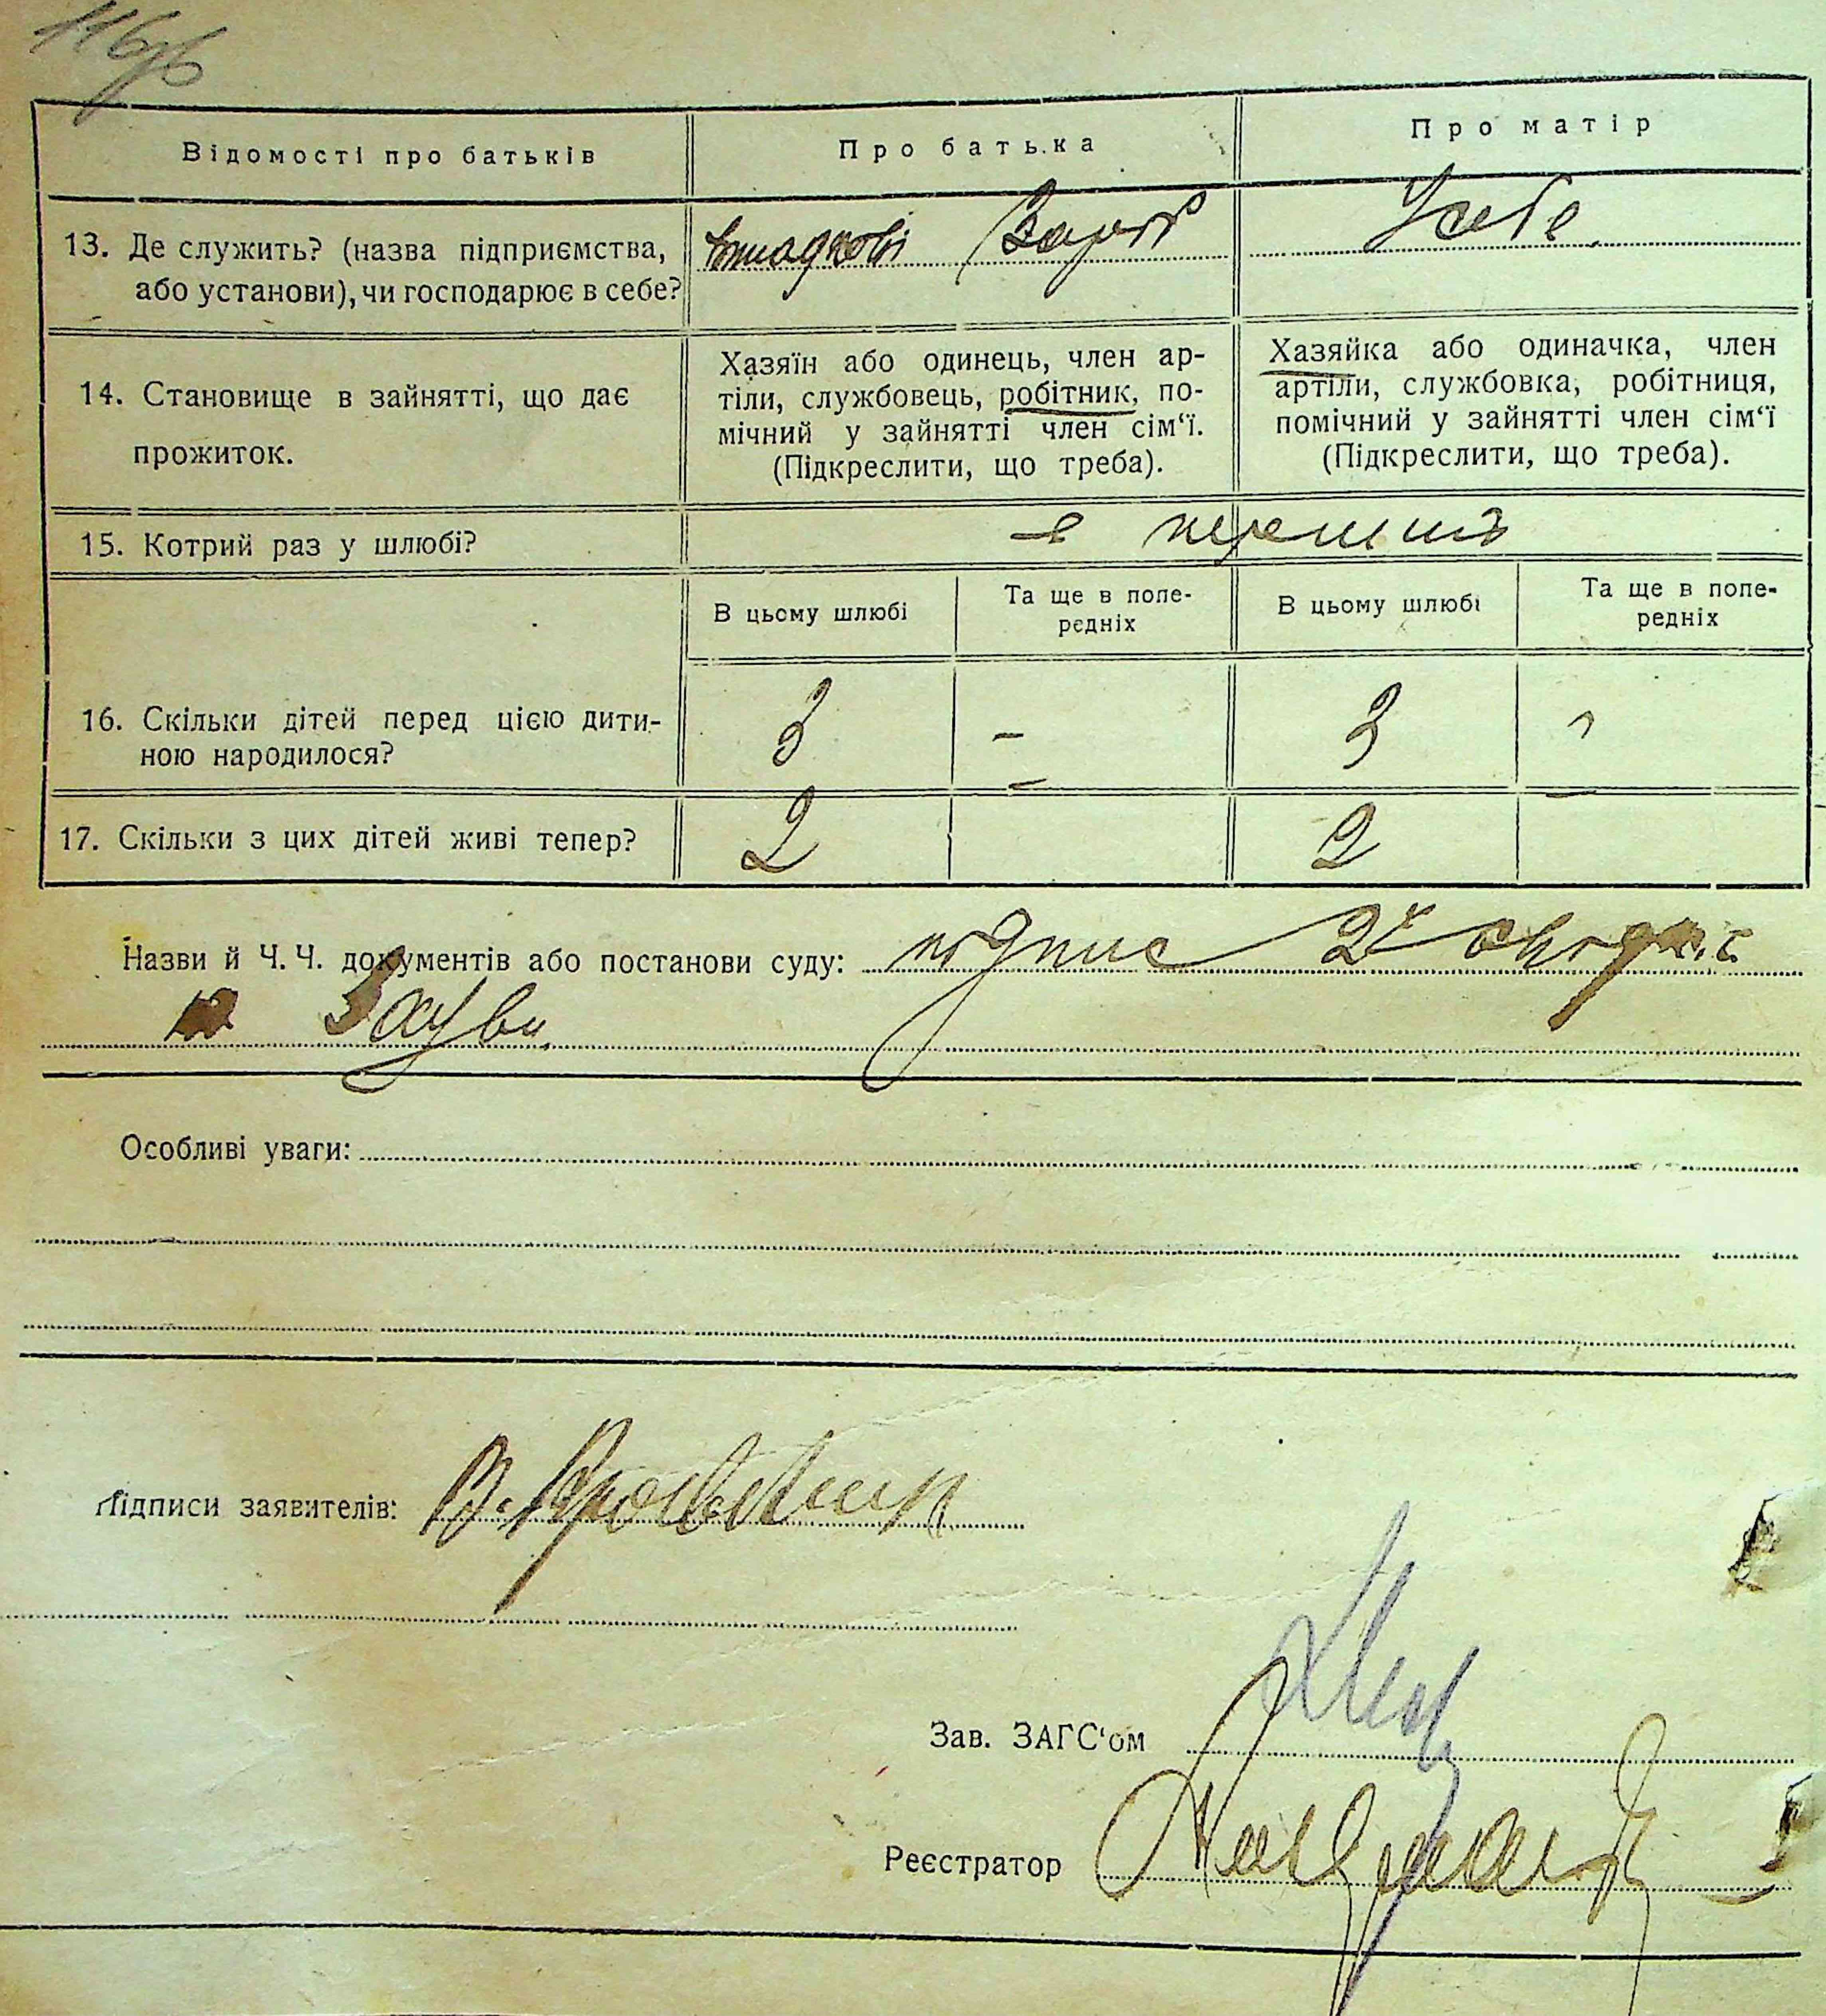 116зв
Відомості про батьків
Про батька
Про матір
13. Де служить? (назва підприємства,
або установи), чи господарює в себе?
випадкові Зароб
У себе.
14. Становище в зайнятті, що дає
прожиток.
Хазяїн або одинець, член ар-
тіли, службовець, робітник, по-
мічний у зайнятті член сім‘ї.
(Підкреслити, що треба).
Хазяйка або одиначка, член
артіли, службовка, робітниця,
помічний у зайнятті член сім‘ї
(Підкреслити, що треба).
15. Котрий раз у шлюбі?
в перший
В цьому шлюбі
Та ще в попе-
редніх
В цьому шлюбі
Та ще в попе-
редніх
16. Скільки дітей перед цією дити-
ною народилося?
3 - 3
17. Скільки з цих дітей живі тепер?
2 - 2 -
Назви й Ч. Ч. документів або постанови суду: подпис 2х
Особливі уваги:
Підписи заявителів:
Зав. ЗАГС‘ом
Реєстратор